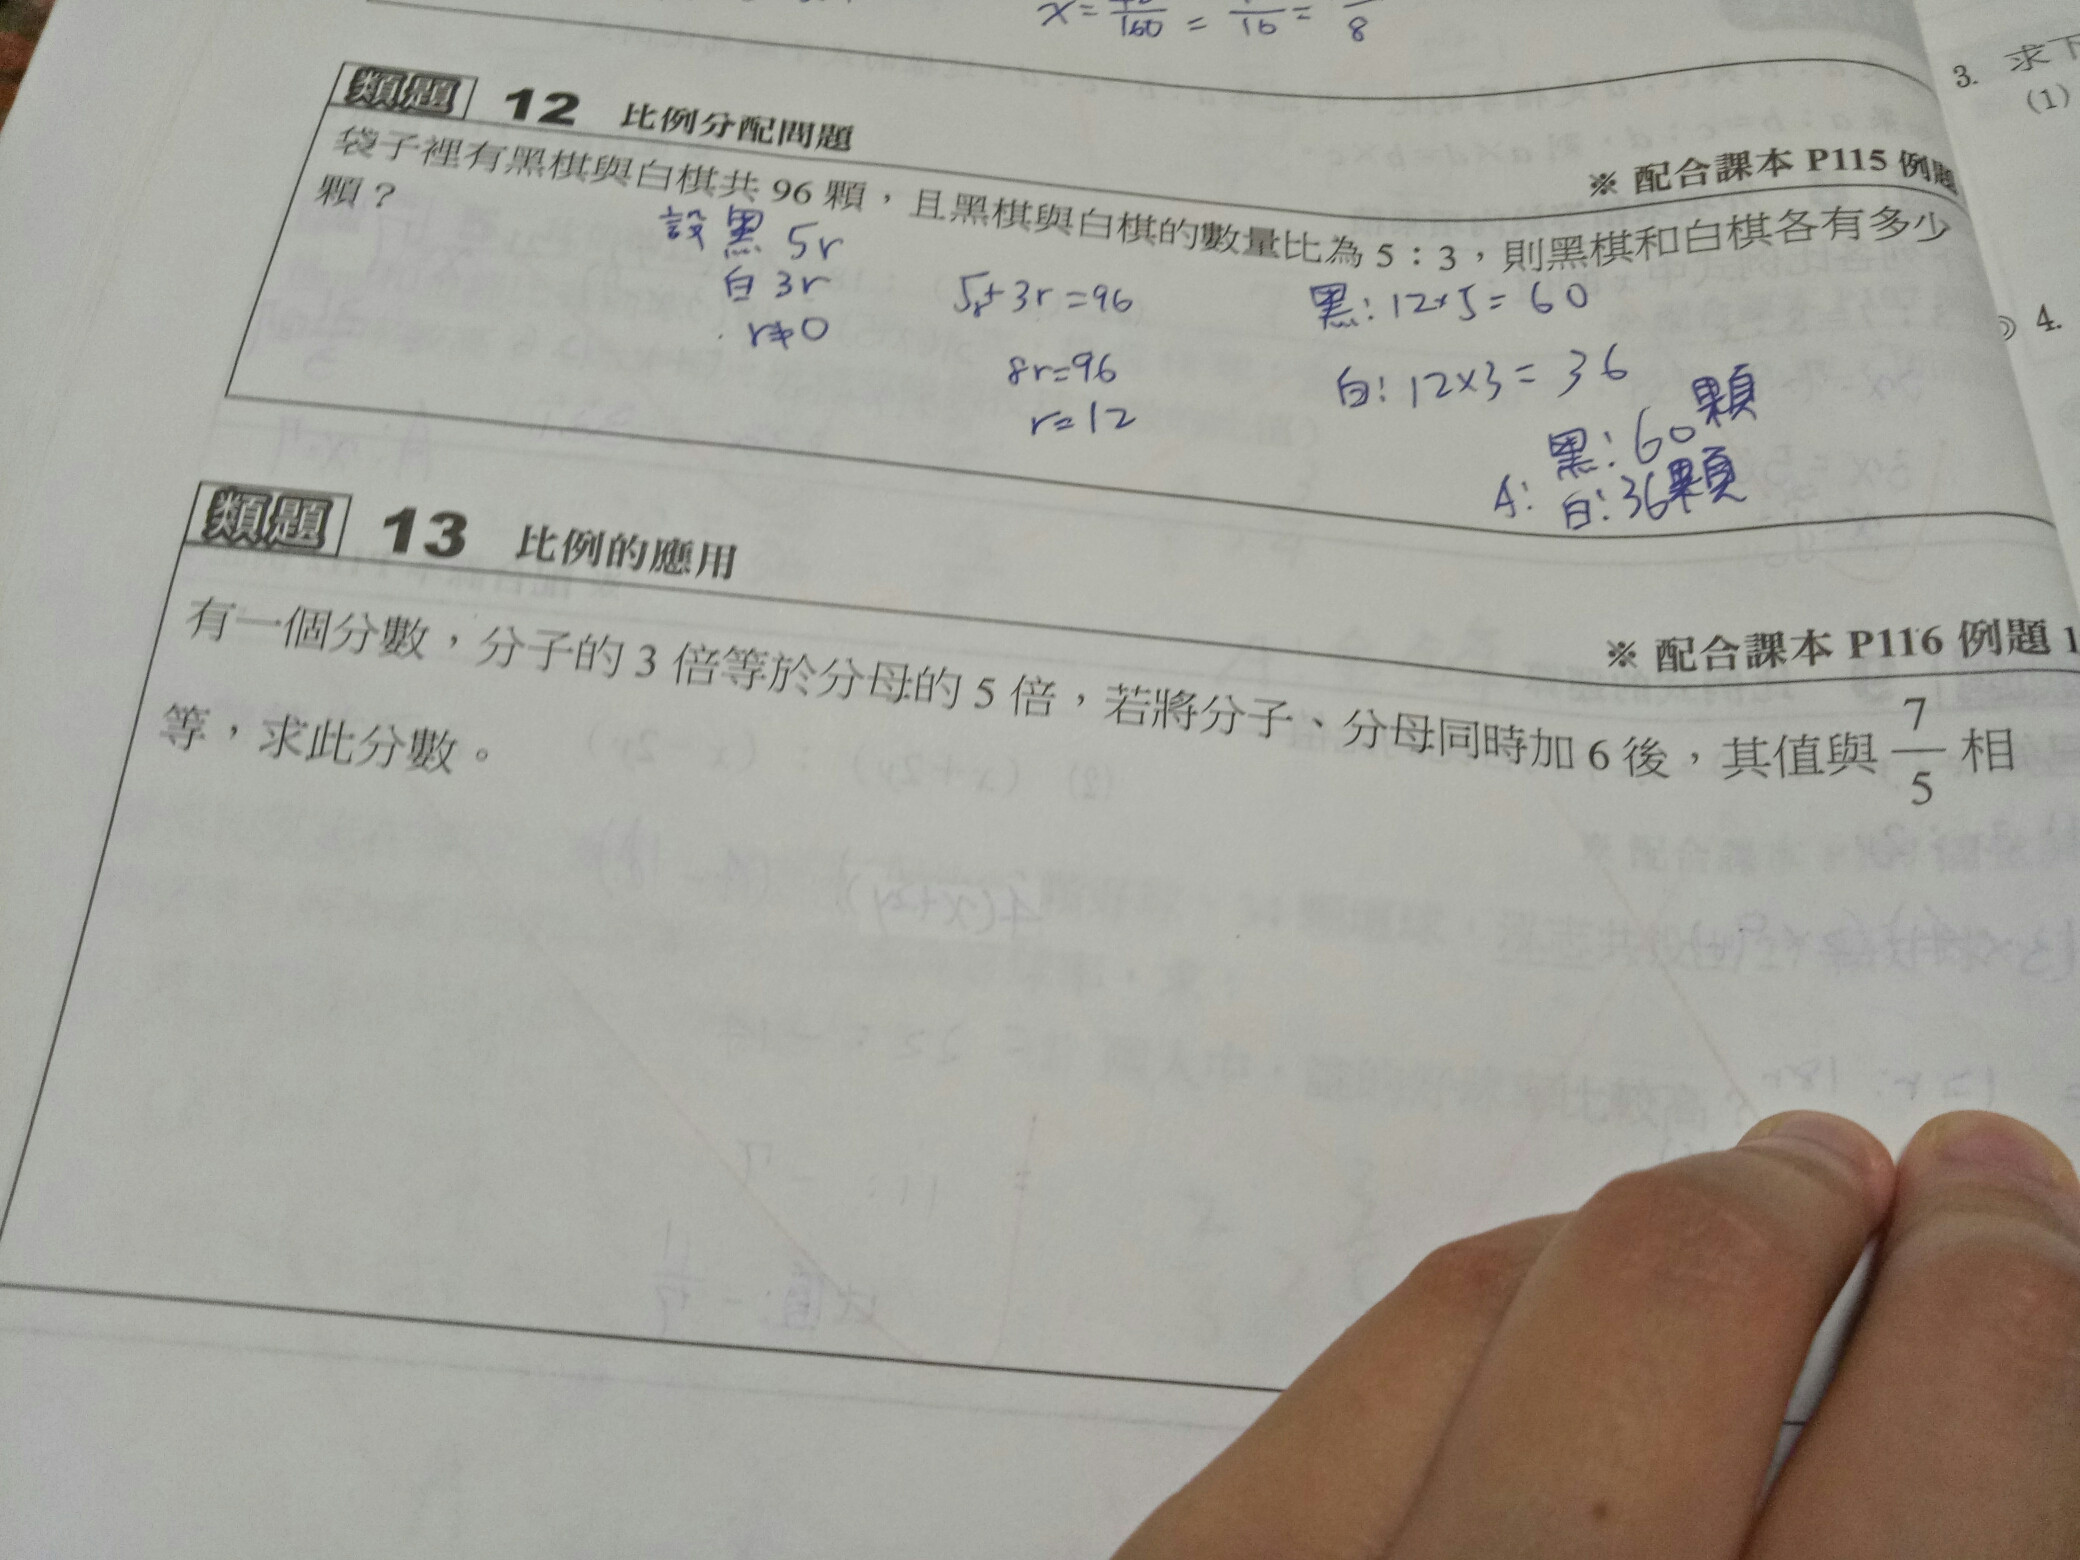 x= /160 = /16 = /8
3. 求下
(1)
類題 12 比例分配問題
※ 配合課本 P115 例題
袋子裡有黑棋與白棋共 96 顆，且黑棋與白棋的數量比為 5：3，則黑棋和白棋各有多少
顆？
設 黑 5r
白 3r
r≠0
5r+3r=96
8r=96
r=12
黑: 12×5=60
白: 12×3=36
A: 黑: 60顆
白: 36顆
4.
類題 13 比例的應用
※ 配合課本 P116 例題 1
有一個分數，分子的 3 倍等於分母的 5 倍，若將分子、分母同時加 6 後，其值與 7/5 相
等，求此分數。